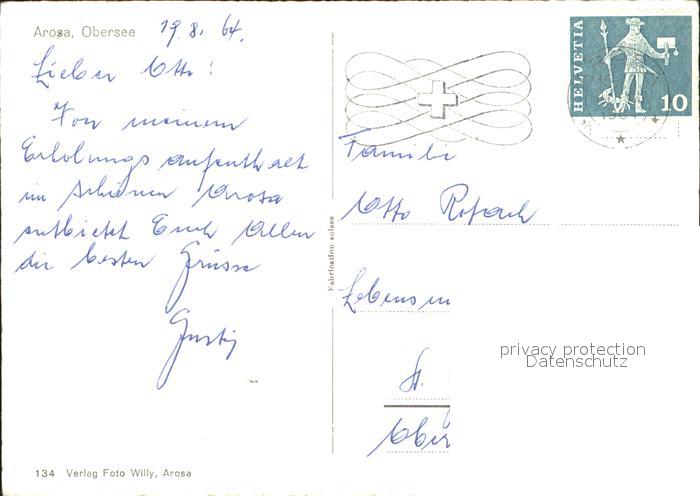 Arosa, Obersee
19.8.64.
HELVETIA
10
Lieber Otto!
Von meinem
Erholungsaufenthalt
im schönen Arosa
entbietet Euch Allen
die besten Grüsse
Gusti
Familie
Otto Rotach
Lebensm
St.
Ober
Fabrication suisse
privacy protection
Datenschutz
134 Verlag Foto Willy, Arosa